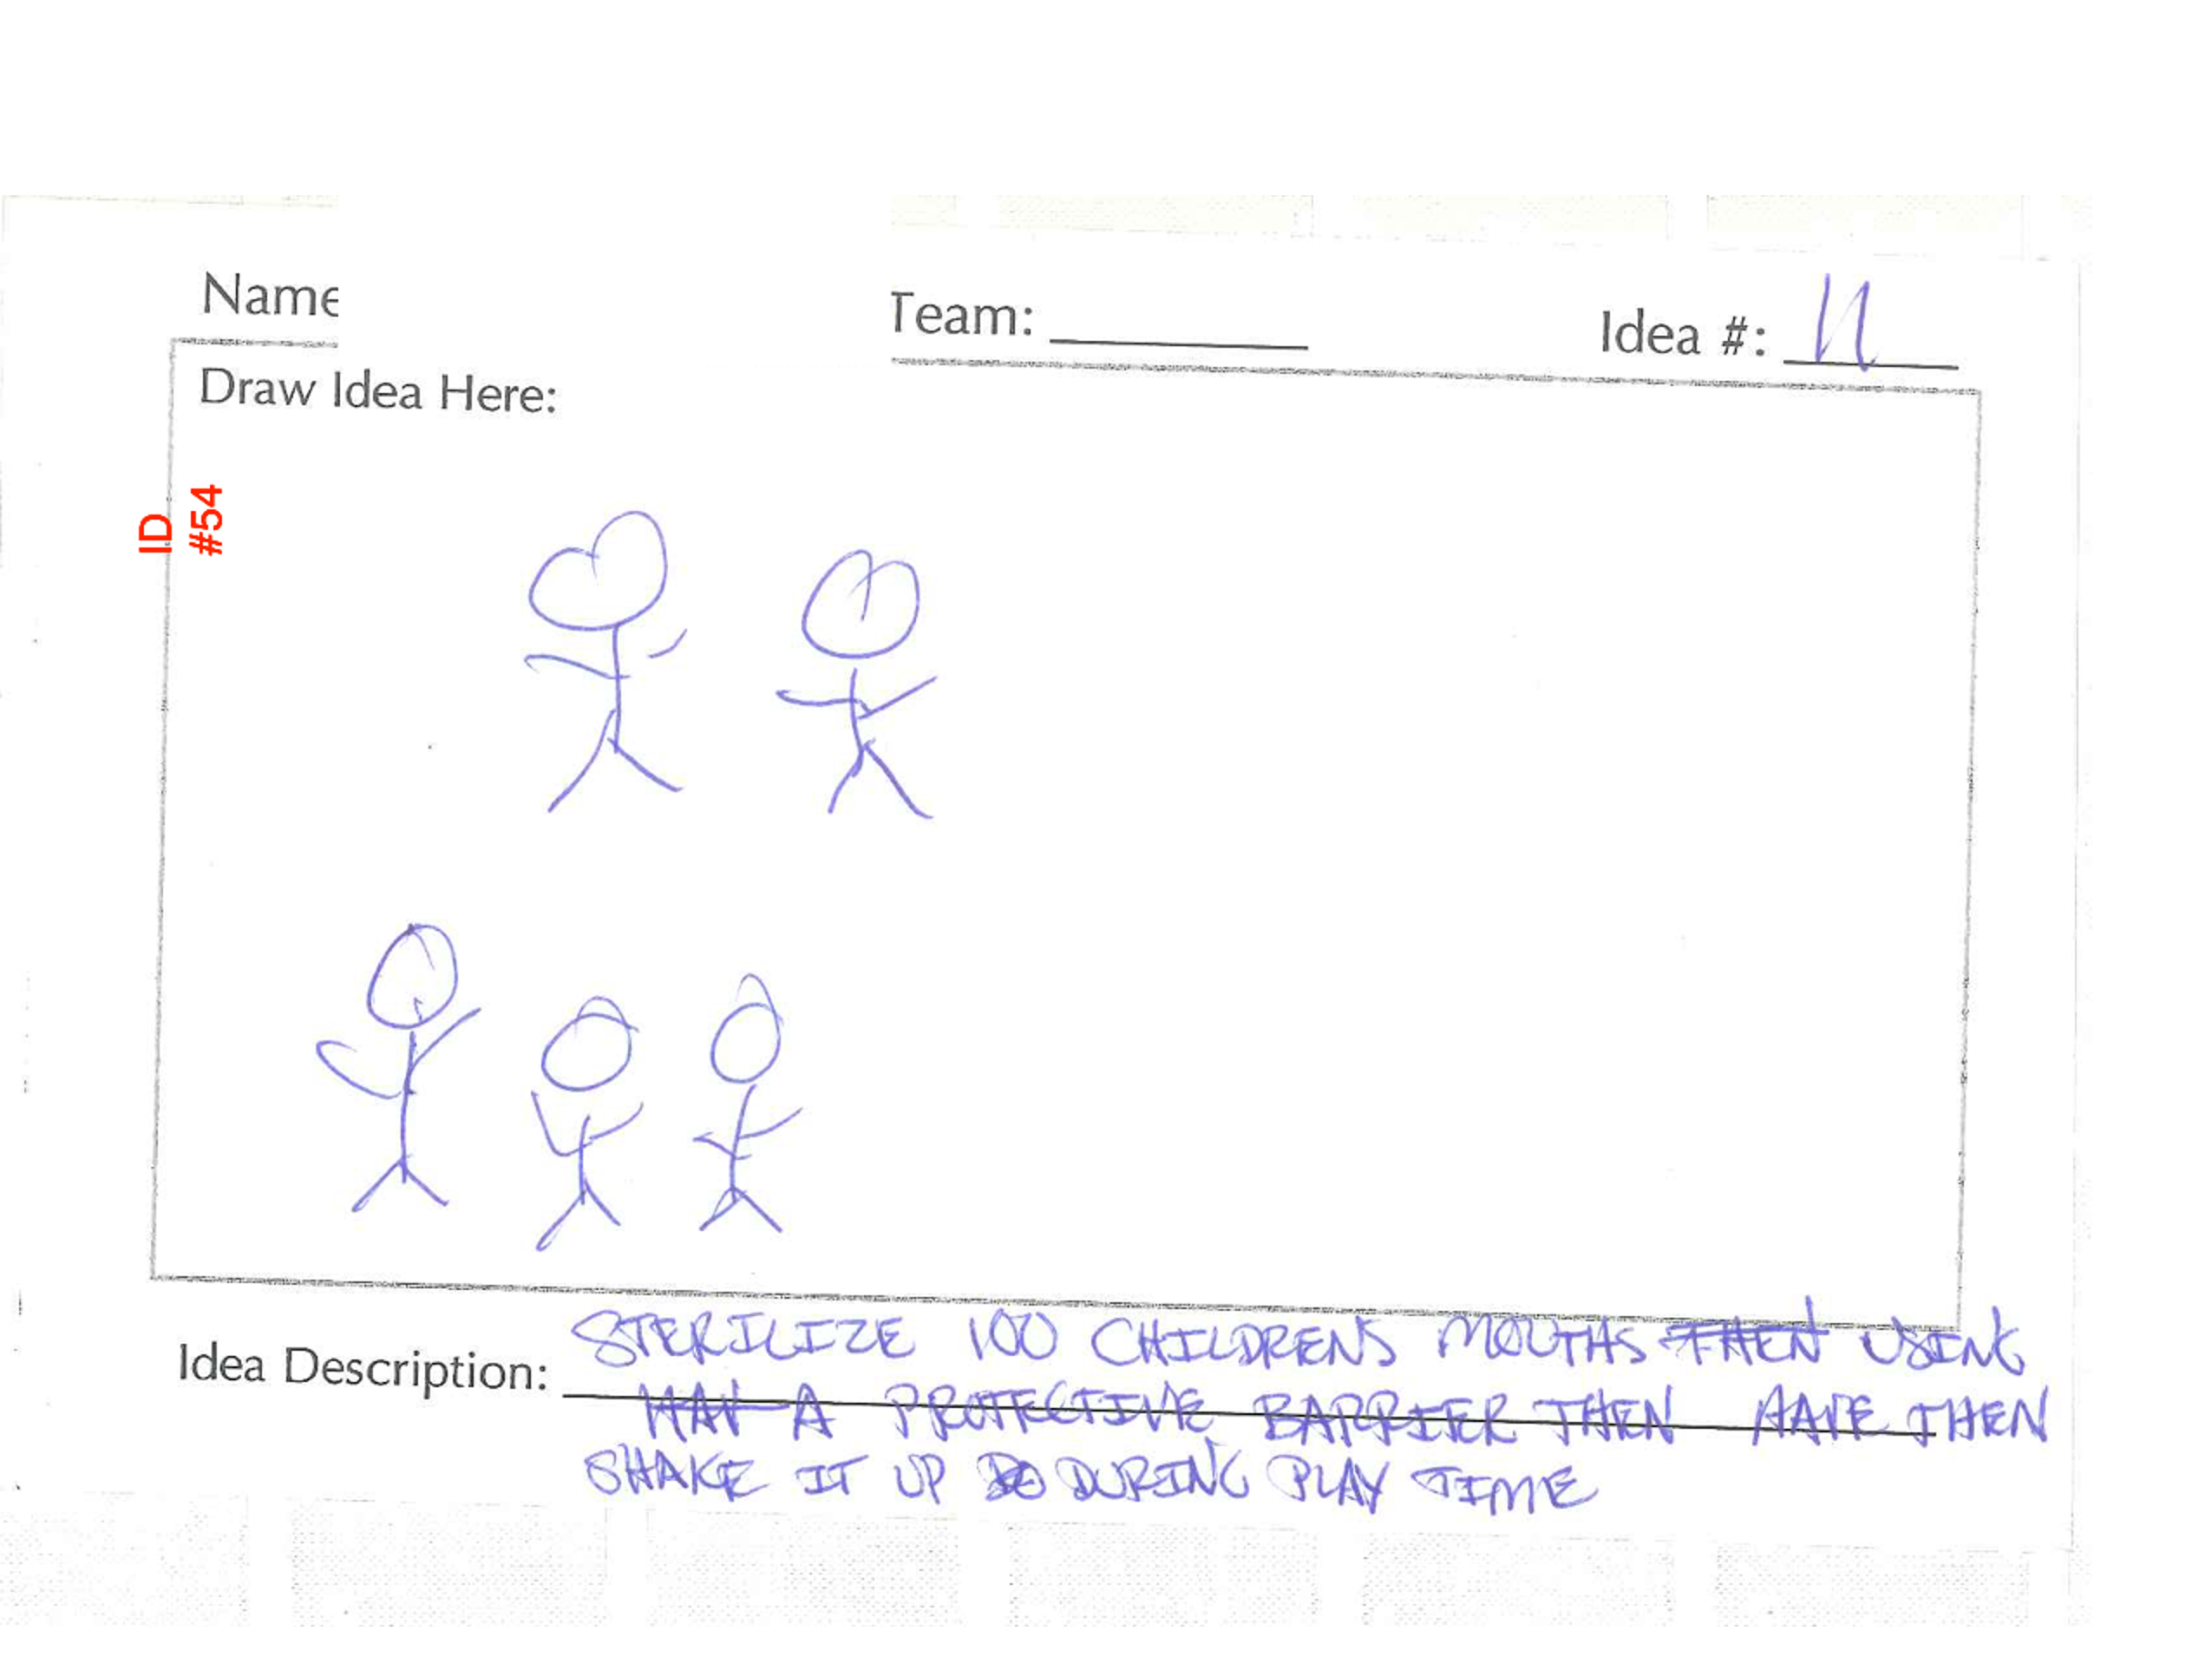 Name
Team:
Idea #: 11
Draw Idea Here:
ID
#54
Idea Description: STERILIZE 100 CHILDRENS MOUTHS THEN USING
A PROTECTIVE BARRIER THEN HAVE THEN
SHAKE IT UP DURING PLAY TIME